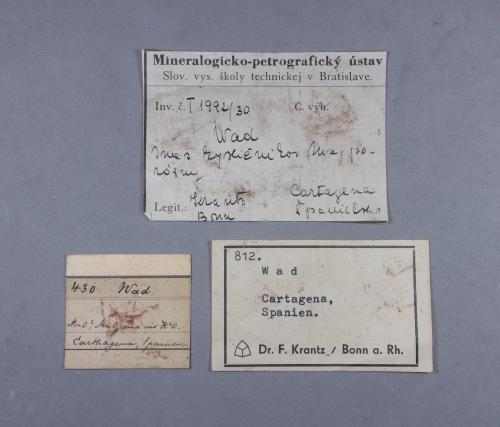 Mineralogicko-petrografický ústav
Slov. vys. školy technickej v Bratislave.
Inv. č. T 1992/30 C. výb.
Wad
Mn, po-
rózny
Legit.: Krantz Cartagena
Bonn
430. Wad.
Carthagena, Spanien.
812.
Wad
Cartagena,
Spanien.
Dr. F. Krantz / Bonn a. Rh.